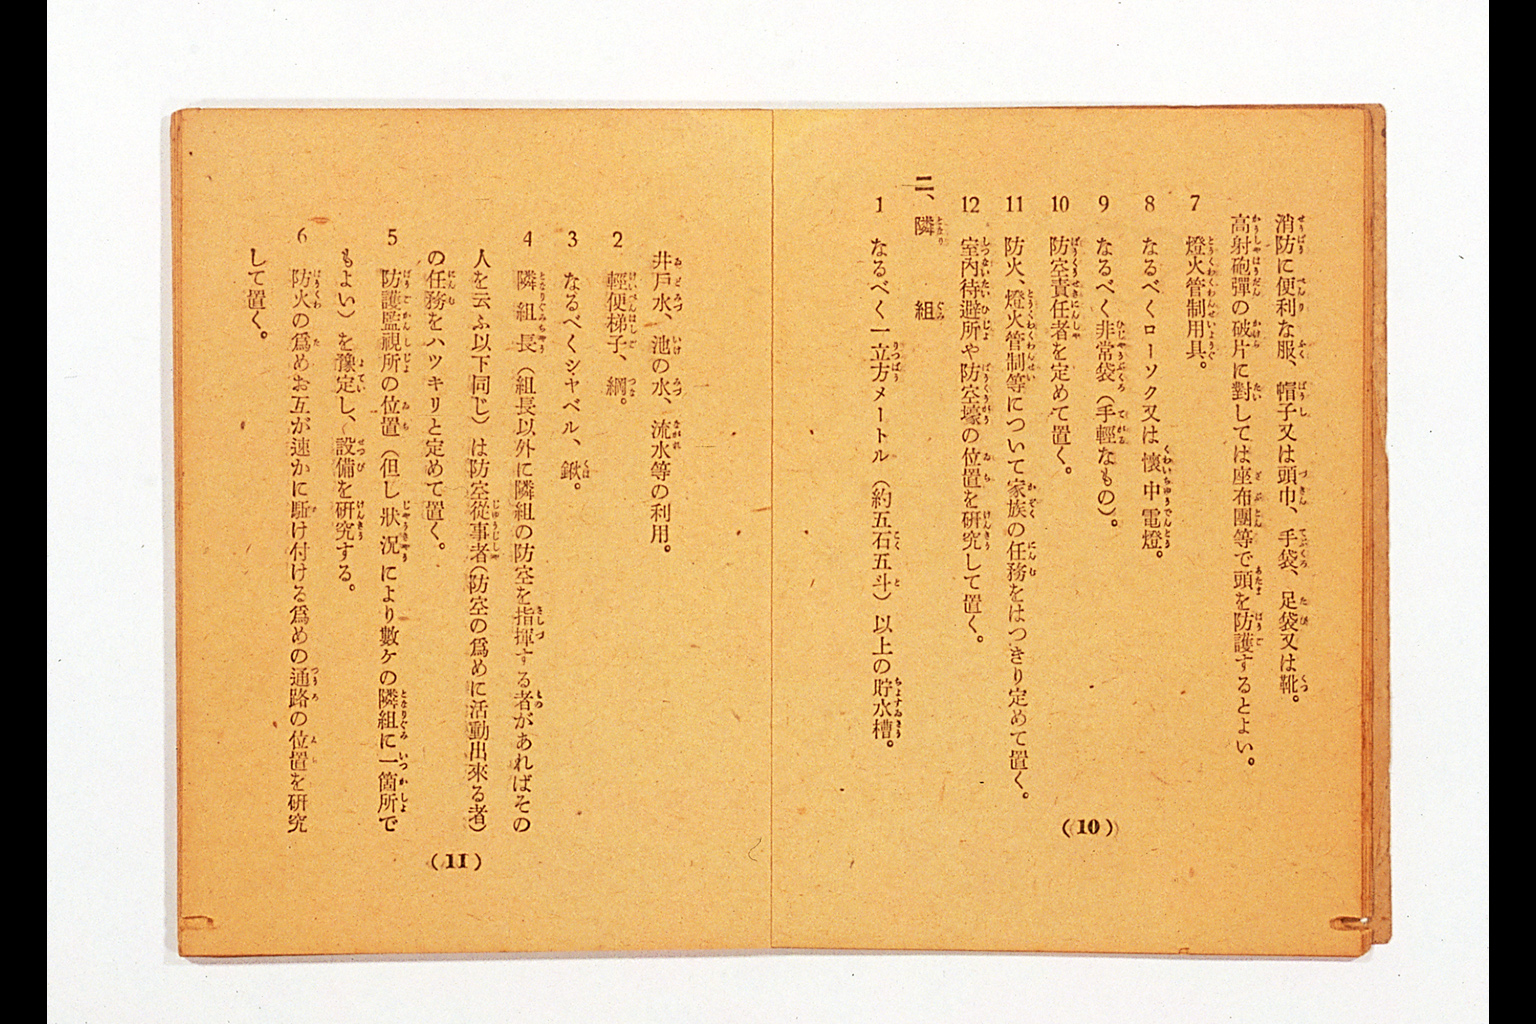 消防に便利な服、帽子又は頭巾、手袋、足袋又は靴。
高射砲彈の破片に對しては座布團等で頭を防護するとよい。
7 燈火管制用具。
8 なるべくローソク又は懷中電燈。
9 なるべく非常袋（手輕なもの）。
10 防空責任者を定めて置く。
11 防火、燈火管制等について家族の任務をはつきり定めて置く。
12 室內待避所や防空壕の位置を硏究して置く。
二、隣組
1 なるべく一立方メートル（約五石五斗）以上の貯水槽。
(10)
井戶水、池の水、流水等の利用。
2 輕便梯子、綱。
3 なるべくシャベル、鍬。
4 隣組長（組長以外に隣組の防空を指揮する者があればその
人を云ふ以下同じ）は防空從事者（防空の爲めに活動出來る者）
の任務をハツキリと定めて置く。
5 防護監視所の位置（但し狀況により數ケの隣組に一箇所で
もよい）を豫定し、設備を硏究する。
6 防火の爲めお互が速かに駈け付ける爲めの通路の位置を硏究
して置く。
(11)